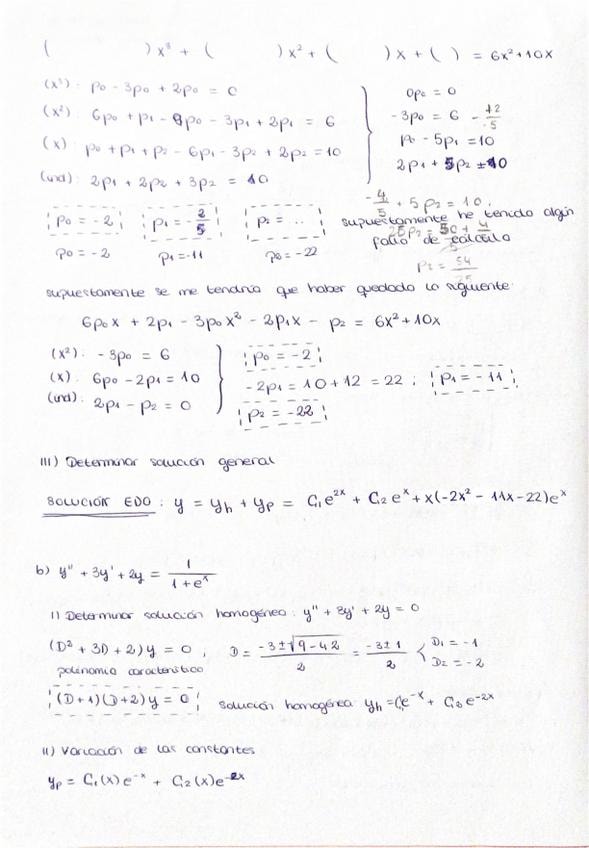 ( ) x³ + ( ) x² + ( ) x + ( ) = 6x² + 10x
(x³): p₀ - 3p₀ + 2p₀ = 0
(x²): 6p₀ + p₁ - 9p₀ - 3p₁ + 2p₁ = 6
(x): p₀ + p₁ + p₂ - 6p₁ - 3p₂ + 2p₂ = 10
(ind): 2p₁ + 2p₂ + 3p₂ = 10
0p₀ = 0
-3p₀ = 6 - 12/5
p₀ - 5p₁ = 10
2p₁ + 5p₂ = 10
p₀ = -2 p₁ = -2/5 p₂ = ..
-4/5 + 5p₂ = 10.
25p₂ = 50 + 4/5
p₂ = 54/25
supuestamente he tenido algún
fallo de cálculo
p₀ = -2 p₁ = -11 p₂ = -22
supuestamente se me tendría que haber quedado lo siguiente:
6p₀x + 2p₁ - 3p₀x² - 2p₁x - p₂ = 6x² + 10x
(x²): -3p₀ = 6
(x): 6p₀ - 2p₁ = 10
(ind): 2p₁ - p₂ = 0
p₀ = -2
-2p₁ = 10 + 12 = 22 ; p₁ = -11
p₂ = -22
III) Determinar solución general
SOLUCIÓN EDO: y = yh + yp = C₁e^2x + C₂e^x + x(-2x² - 11x - 22)e^x
b) y'' + 3y' + 2y = 1/(1+e^x)
I) Determinar solución homogénea: y'' + 3y' + 2y = 0
(D² + 3D + 2)y = 0 ; D = (-3 ± √9-4.2)/2 = (-3 ± 1)/2 < D₁ = -1
D₂ = -2
polinomio característico
(D+1)(D+2)y = 0 solución homogénea: yh = C₁e^-x + C₂e^-2x
II) Variación de las constantes
yp = C₁(x)e^-x + C₂(x)e^-2x